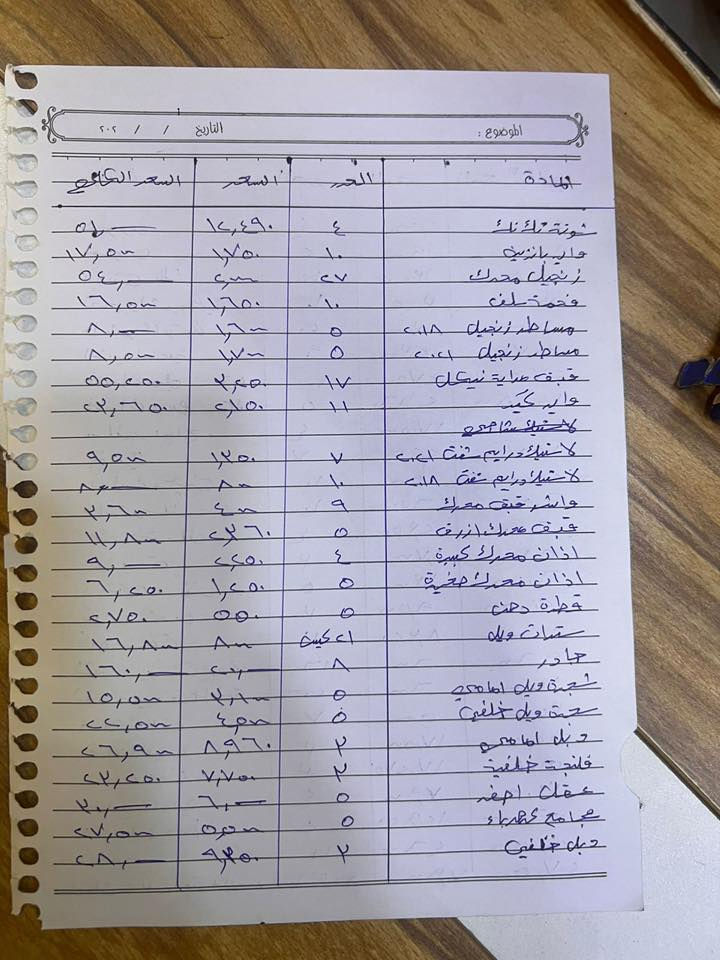 الموضوع : التاريخ / / ٢٠٢
المادة العدد السعر السعر الكلي
شونة تك تك ٤ ١٢,٤٩٠ ٥٠,ــــ
واير بانزين ١٠ ١,٧٥٠ ١٧,٥٠٠
زنجيل محرك ٢٧ ٢,٠٠٠ ٥٤,ــــ
فحمة سلف ١٠ ١,٦٥٠ ١٦,٥٠٠
مساطر زنجيل ٢٠١٨ ٥ ١,٦٠٠ ٨,ــــ
مساطر زنجيل ٢٠٢١ ٥ ١,٧٠٠ ٨,٥٠٠
قبق مراية نيكل ١٧ ٣,٢٥٠ ٥٥,٢٥٠
واير كير ١١ ٢,١٥٠ ٢٣,٦٥٠
لاستيك
لاستيك درايم شفت ٢٠٢١ ٧ ١,٣٥٠ ٩,٥٠٠
لاستيك درايم شفت ٢٠١٨ ١٠ ٨٠٠ ٨,ــــ
واشر قبق محرك ٩ ٤٠٠ ٣,٦٠٠
قبق محرك ازرق ٥ ٢,٣٦٠ ١١,٨٠٠
اذان محرك كبيرة ٤ ٢,٢٥٠ ٩,ــــ
اذان محرك صغيرة ٥ ١,٢٥٠ ٦,٢٥٠
قطرة دهن ٥ ٥٥٠ ٢,٧٥٠
ستدات ويل ٢١ كيس ٨٠٠ ١٦,٨٠٠
جادر ٨ ٢٠,ــــ ١٦٠,ــــ
شمعة ويل امامي ٥ ٣,١٠٠ ١٥,٥٠٠
شمعة ويل خلفي ٥ ٤,٥٠٠ ٢٢,٥٠٠
دبل امامي ٣ ٨,٩٦٠ ٢٦,٩٠٠
فلنجة خلفية ٣ ٧,٧٥٠ ٢٣,٢٥٠
عقل اصفر ٥ ٦,ــــ ٣٠,ــــ
مجامع كهرباء ٥ ٥,٥٠٠ ٢٧,٥٠٠
دبل خلفي ٣ ٩,٣٥٠ ٢٨,ــــ